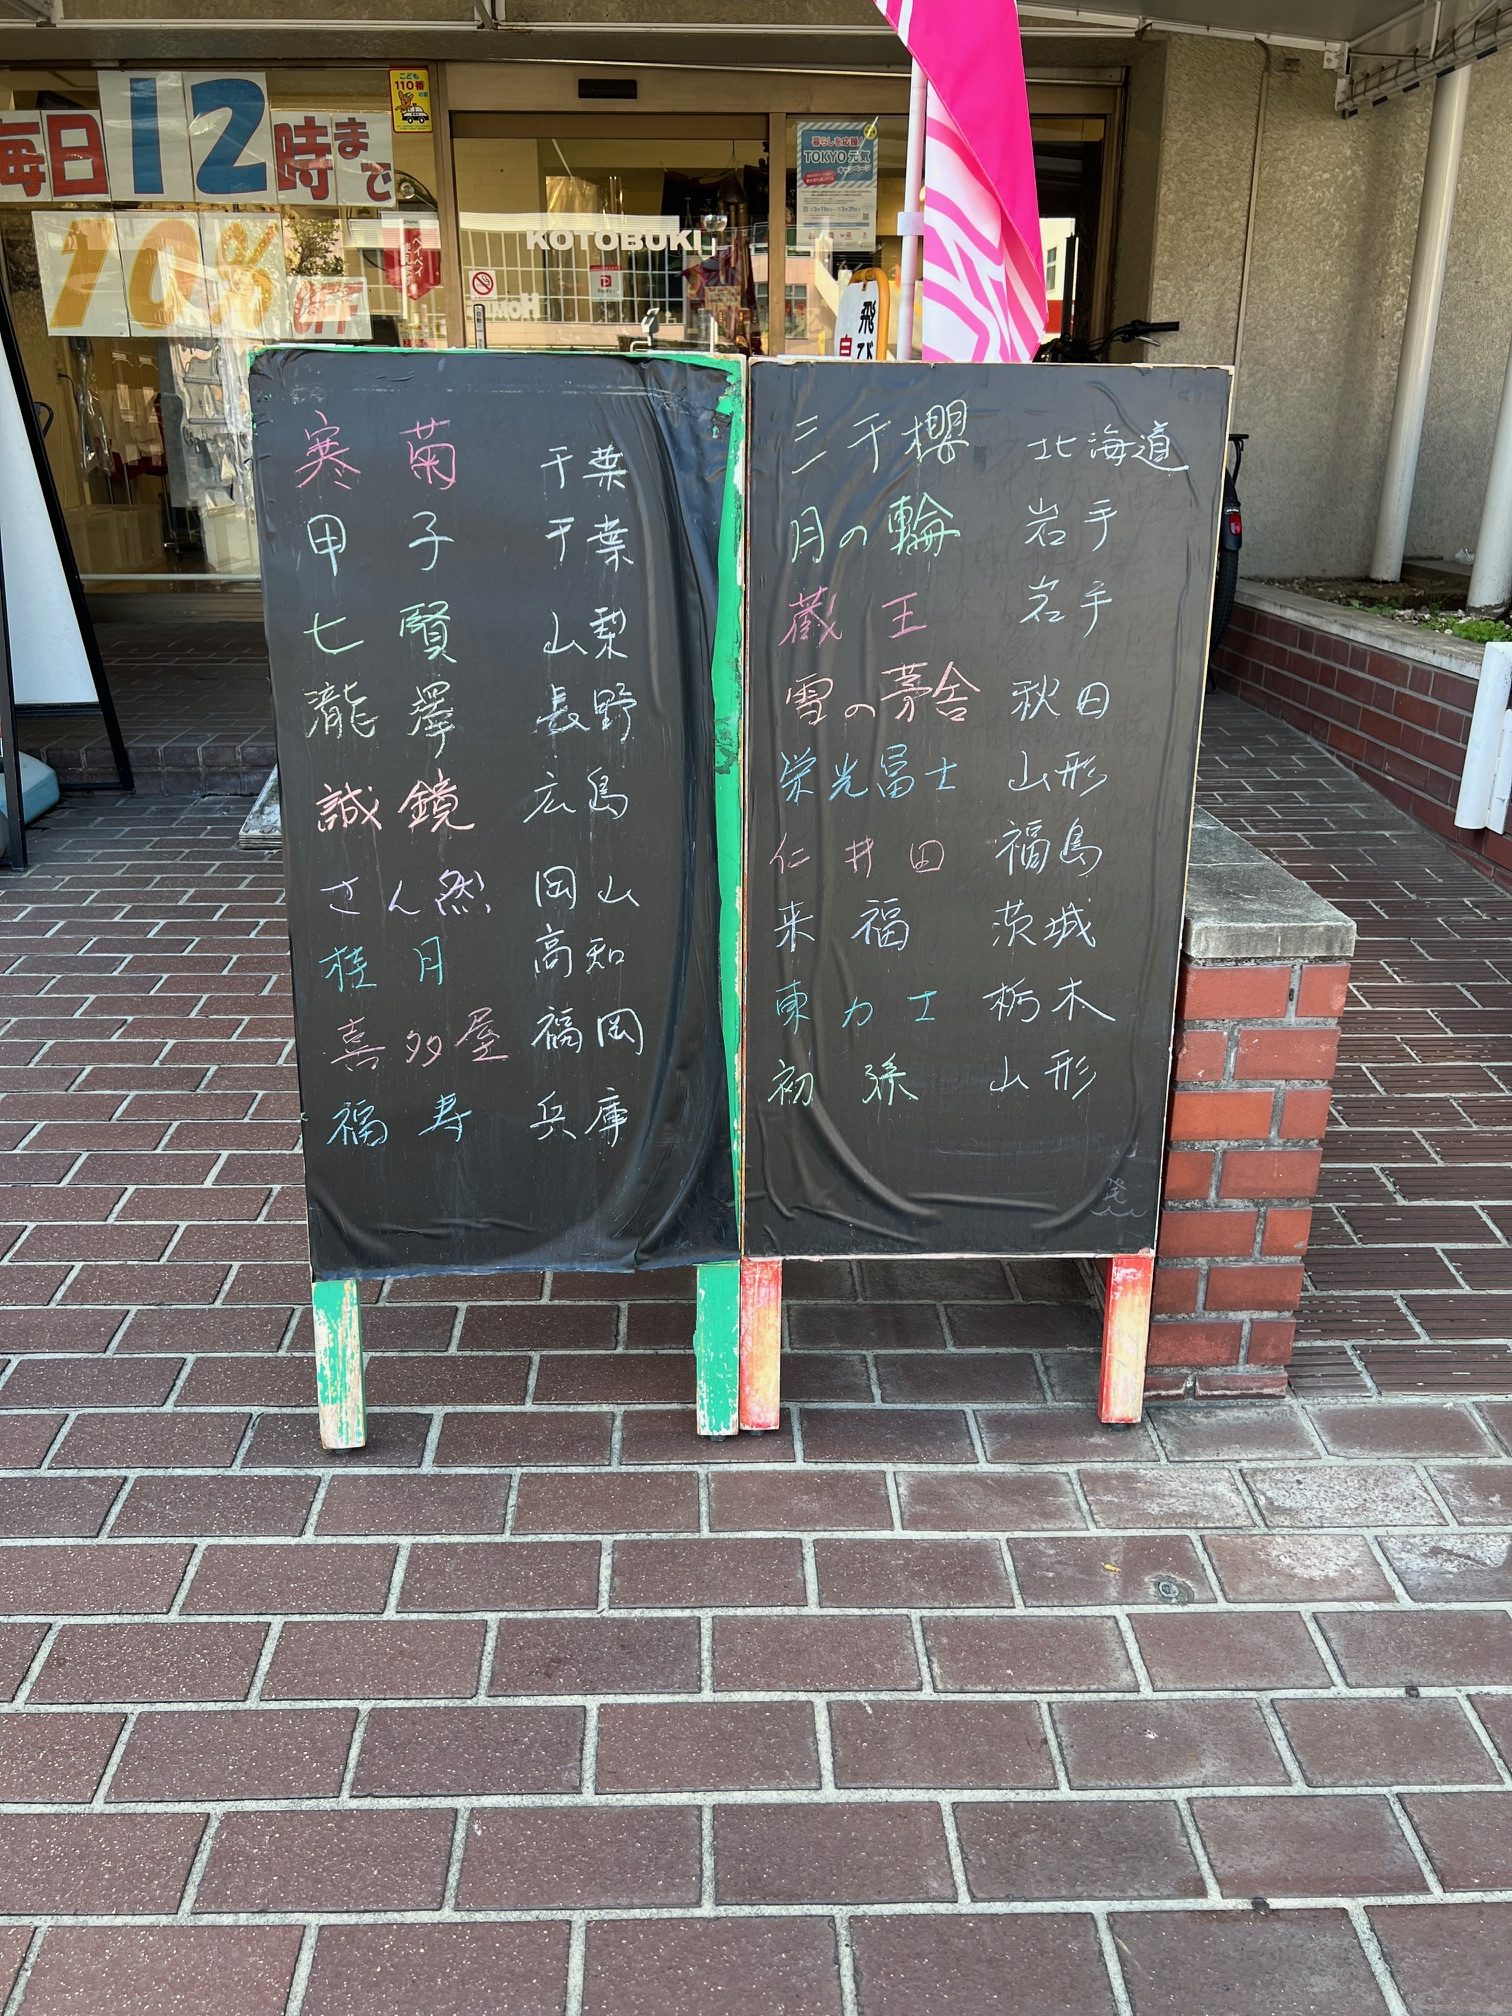 毎日12時まで
10% OFF
こども
110番
KOTOBUKI
暮らしを応援!
TOKYO元気
キャンペーン
ペイペイ
PayPay
飛び
寒菊 千葉
甲子 千葉
七賢 山梨
瀧澤 長野
誠鏡 広島
さん然 岡山
桂月 高知
喜多屋 福岡
福寿 兵庫
三千櫻 北海道
月の輪 岩手
蔵王 岩手
雪の茅舎 秋田
栄光冨士 山形
仁井田 福島
来福 茨城
東力士 栃木
初孫 山形